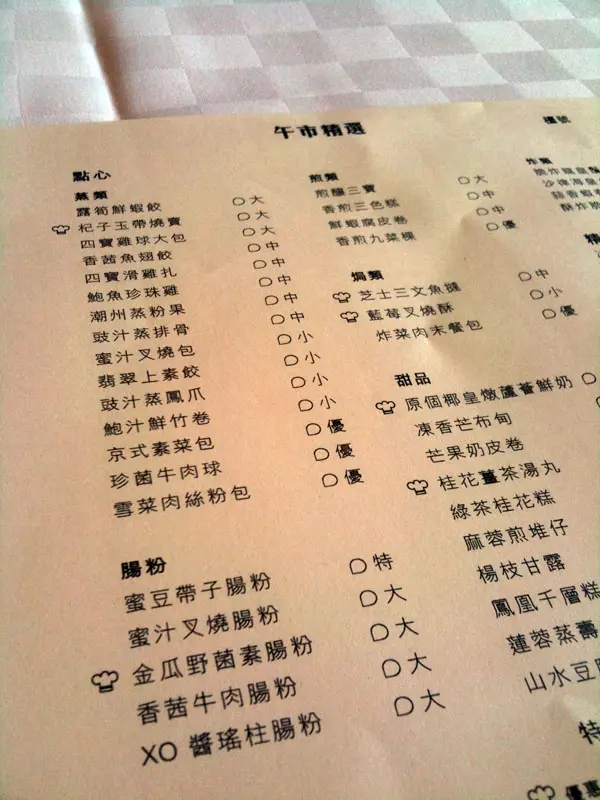 午市精選
檯號
點心
蒸類
露筍鮮蝦餃 大
杞子玉帶燒賣 大
四寶雞球大包 大
香茜魚翅餃 中
四寶滑雞扎 中
鮑魚珍珠雞 中
潮州蒸粉果 中
豉汁蒸排骨 中
蜜汁叉燒包 小
翡翠上素餃 小
豉汁蒸鳳爪 小
鮑汁鮮竹卷 小
京式素菜包 優
珍菌牛肉球 優
雪菜肉絲粉包 優
腸粉
蜜豆帶子腸粉 特
蜜汁叉燒腸粉 大
金瓜野菌素腸粉 大
香茜牛肉腸粉 大
XO 醬瑤柱腸粉 大
煎類
煎釀三寶 大
香煎三色糕 中
鮮蝦腐皮卷 中
香煎九菜粿 優
焗類
芝士三文魚撻 中
藍莓叉燒酥 小
炸菜肉末餐包 優
甜品
原個椰皇燉蘆薈鮮奶
凍香芒布甸
芒果奶皮卷
桂花薑茶湯丸
綠茶桂花糕
麻蓉煎堆仔
楊枝甘露
鳳凰千層糕
蓮蓉蒸壽
山水豆
特
優惠
炸類